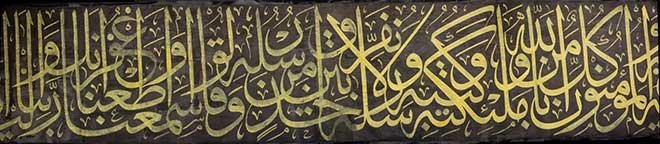 والمؤمنون كل آمن بالله وملئكته وكتبه ورسله لا نفرق بين أحد من رسله وقالوا سمعنا وأطعنا غفرانك ربنا